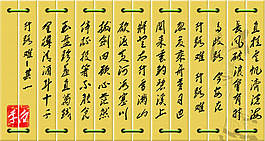 行路难 其一
金樽清酒斗十千
玉盘珍羞直万钱
停杯投箸不能食
拔剑四顾心茫然
欲渡黄河冰塞川
将登太行雪满山
闲来垂钓碧溪上
忽复乘舟梦日边
行路难
多歧路 今安在
长风破浪会有时
直挂云帆济沧海